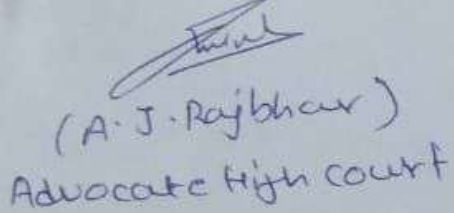 (A.J.Rajbhar)
Advocate High Court